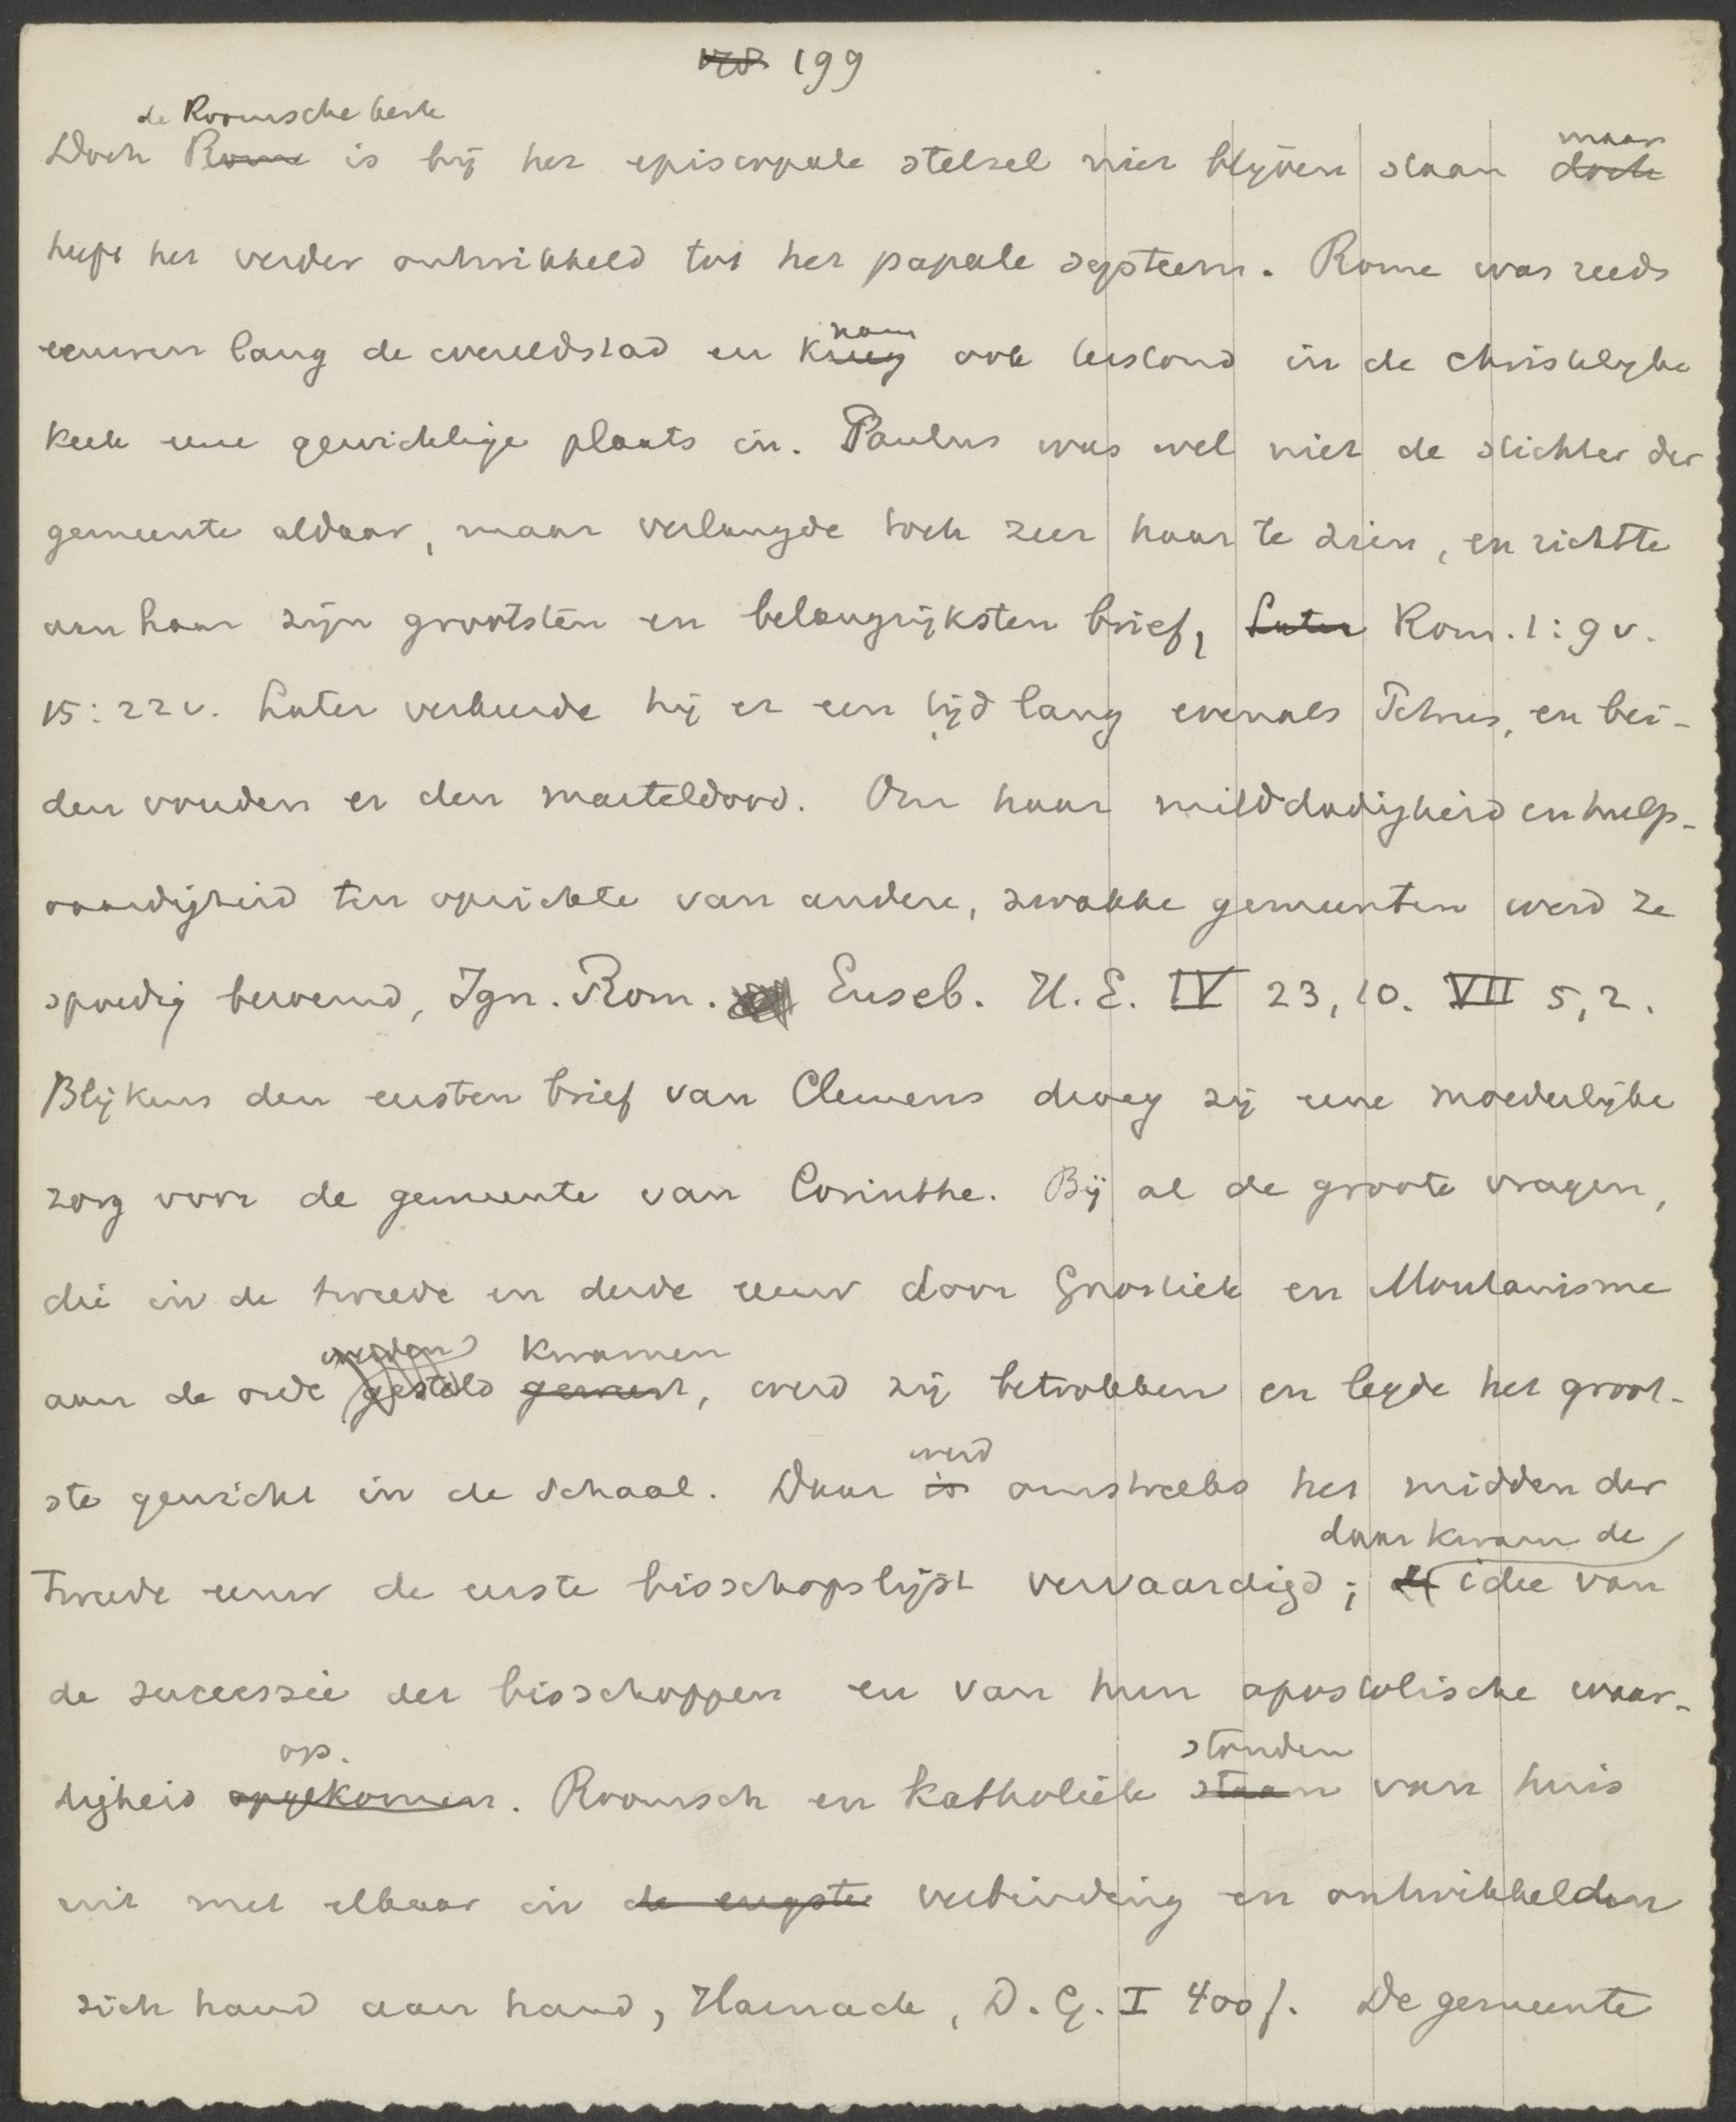 199
de Roomsche kerk
Doch Rome is bij het episcopale stelsel niet blijven staan doch
maar
heeft het verder ontwikkeld tot het papale systeem. Rome was reeds
eeuwen lang de wereldstad en kreeg ook terstond in de christelijke
nam
kerk eene gewichtige plaats in. Paulus was wel niet de stichter der
gemeente aldaar, maar verlangde toch zeer haar te zien, en richtte
aan haar zijn grootsten en belangrijksten brief, Later Rom. 1:9 v.
15:22 v. Later verkeerde hij er een tijd lang evenals Petrus, en bei-
den vonden er den marteldood. Om haar milddadigheid en hulp-
vaardigheid ten opzichte van andere, zwakke gemeenten werd ze
spoedig beroemd, Ign. Rom. Euseb. H. E. IV 23, 10. VII 5, 2.
Blijkens den eersten brief van Clemens droeg zij eene moederlijke
zorg voor de gemeente van Corinthe. Bij al de groote vragen,
die in de tweede en derde eeuw door Gnostiek en Montanisme
werden kwamen
aan de orde gesteld, werd zij betrokken en legde het groot-
ste gewicht in de schaal. Daar is omstreeks het midden der
werd
daar kwam de
tweede eeuw de eerste bisschopslijst vervaardigd; idee van
de successie der bisschoppen en van hun apostolische waar-
op.
digheid opgekomen. Roomsch en katholiek staan van huis
stonden
uit met elkaar in de engste verbinding en ontwikkelden
zich hand aan hand, Harnack, D. G. I 400 f. De gemeente